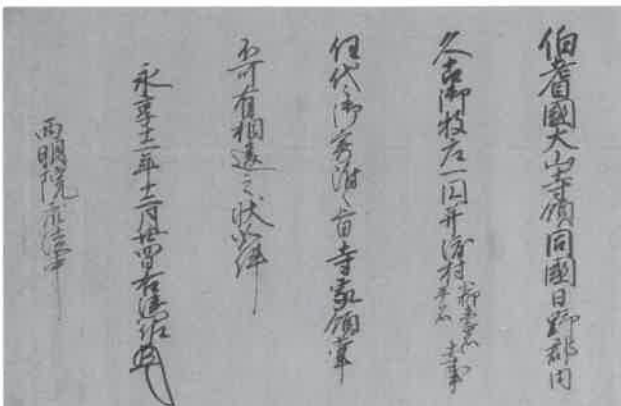 伯耆國大山寺領同國日野郡内
久古御牧庄一圓并渡村
任代々御寄附之旨寺家領掌
不可有相違之状如件
永享十一年十二月廿四日右馬頭
西明院衆徒中